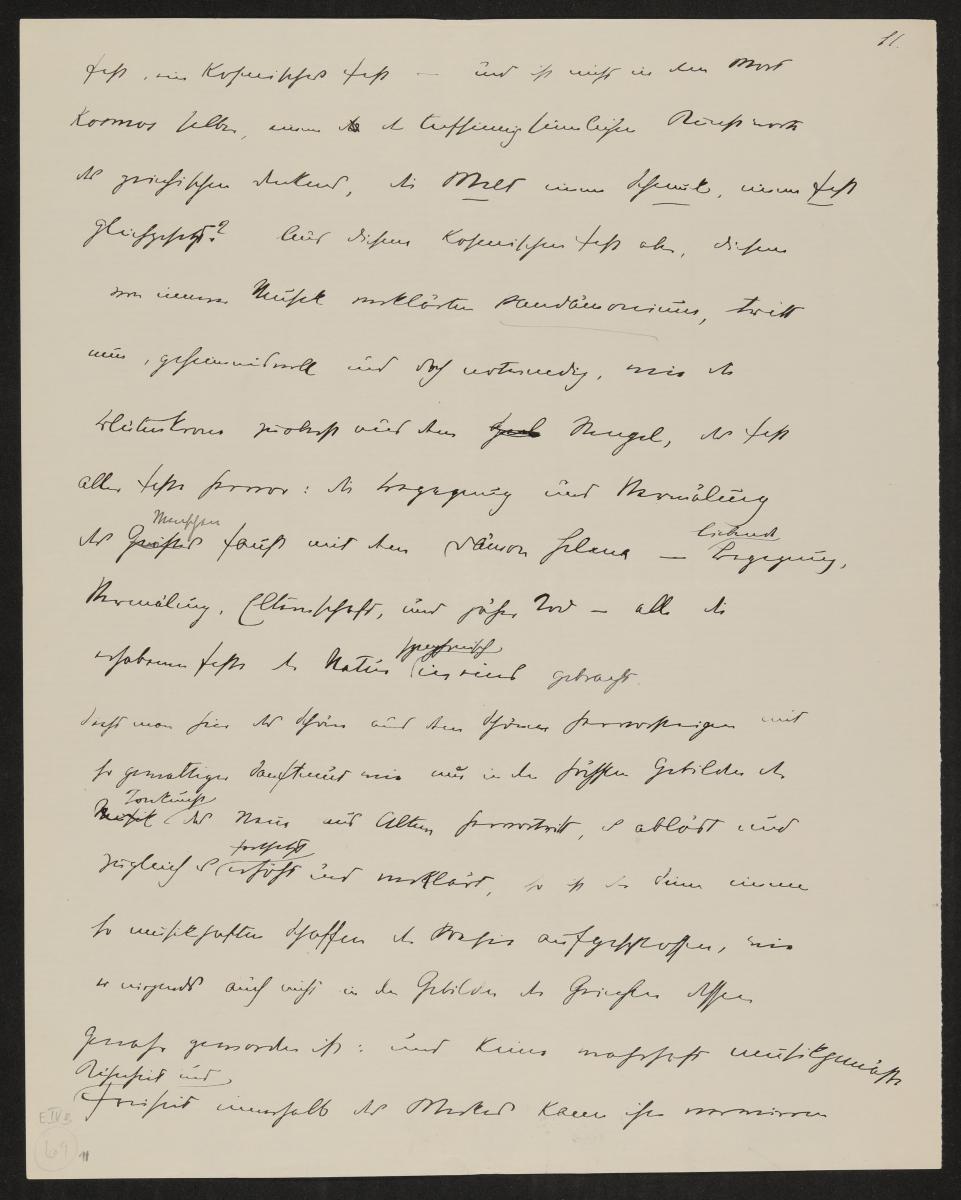 11.
Fest, ein kosmisches Fest — und ist nicht in dem Wort
Kosmos selber, einem der tiefsinnig sinnlichen
des griechischen Denkens, die Welt einem Schmuck, einem Fest
gleichgesetzt? Aus diesem kosmischen Fest aber, diesem
von innerer Musik verklärten Pandämonium, tritt
nun, geheimnisvoll und doch notwendig, wie die
Blütenkrone zuoberst aus dem Stengel, das Fest
aller Feste hervor: die Begegnung und Vermälung
des Menschen Faust mit dem Dämon Helena — liebende Begegnung,
Vermälung, Elternschaft, und jäher Tod — alle die
erhabenen Feste der Natur symphonisch in eins gebracht.
Sieht man hier das Schöne aus dem Schönen hervorsteigen mit
so gewaltiger Sanftmut wie nur in den höchsten Gebilden der
Tonkunst das Neue aus Altem hervortritt, es ablöst und
zugleich es fortsetzt erhöht und verklärt, so ist der Sinn einem
so musikhaften Schaffen der Poesie aufgeschlossen, wie
er nirgends auch nicht in den Gebilden der Griechen dessen
gewahr geworden ist: und keine wahrhaft musikgemäße
Reinheit und
Freiheit innerhalb des Werkes kann ihn verwirren
E IV B
69
11